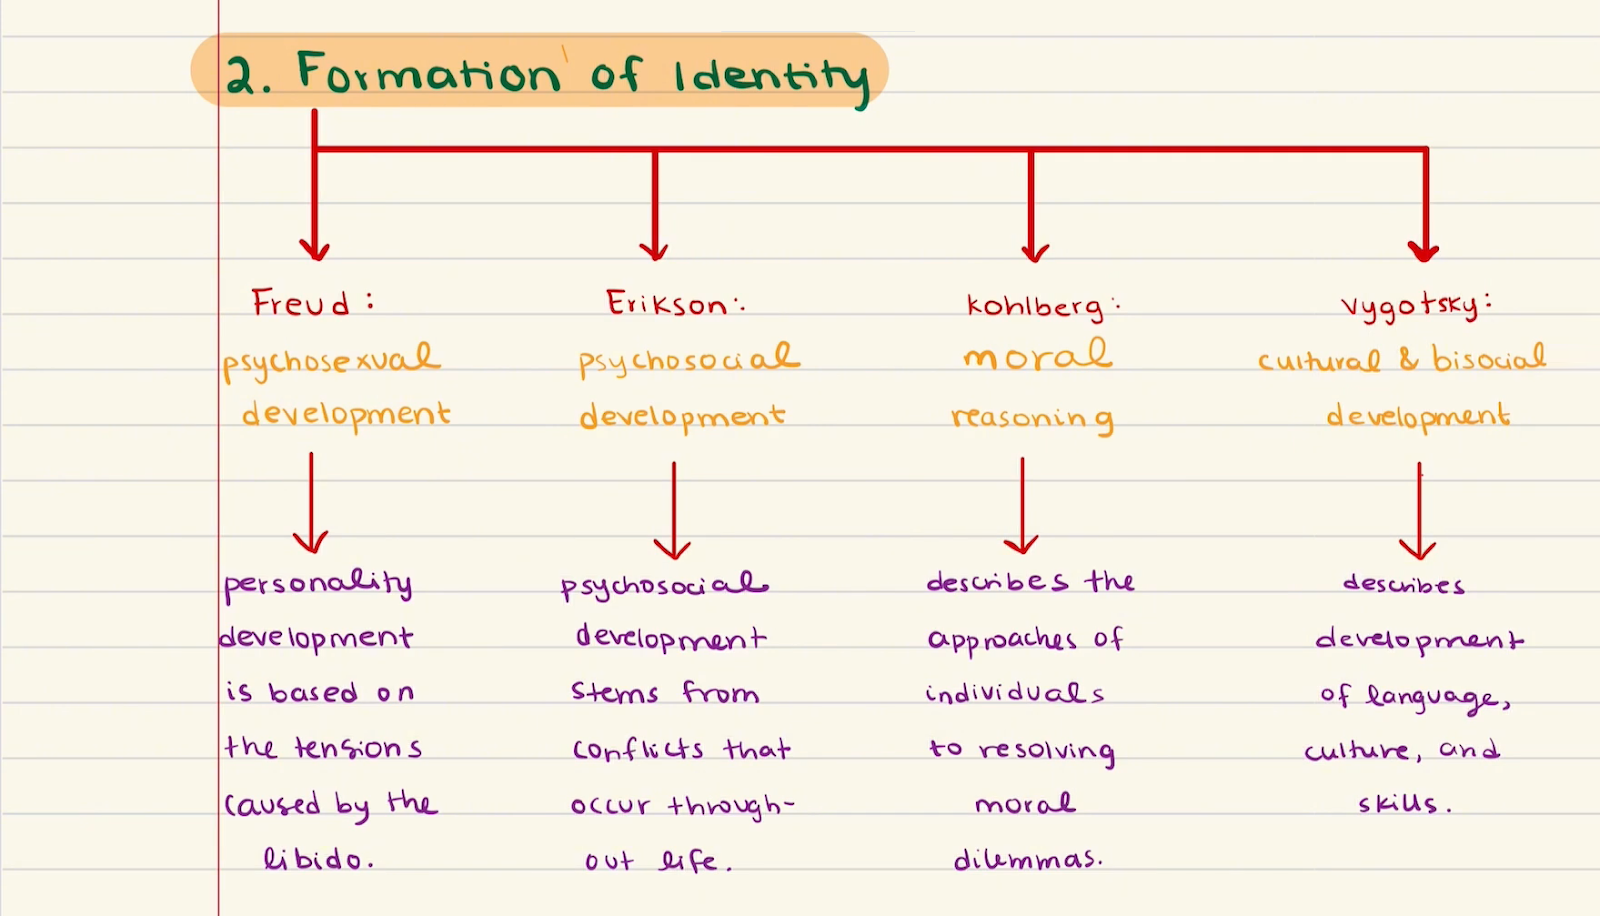 2. Formation of Identity
Freud:
psychosexual
development
personality
development
is based on
the tensions
caused by the
libido.
Erikson:
psychosocial
development
psychosocial
development
stems from
conflicts that
occur through-
out life.
Kohlberg:
moral
reasoning
describes the
approaches of
individuals
to resolving
moral
dilemmas.
Vygotsky:
cultural & bisocial
development
describes
development
of language,
culture, and
skills.